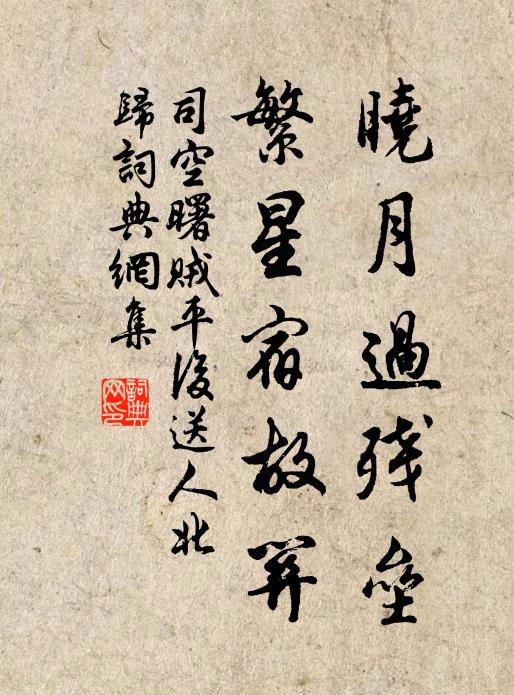 曉月過残壘
繁星宿故關
司空曙賊平後送人北
歸詞典網集
詞典
网印